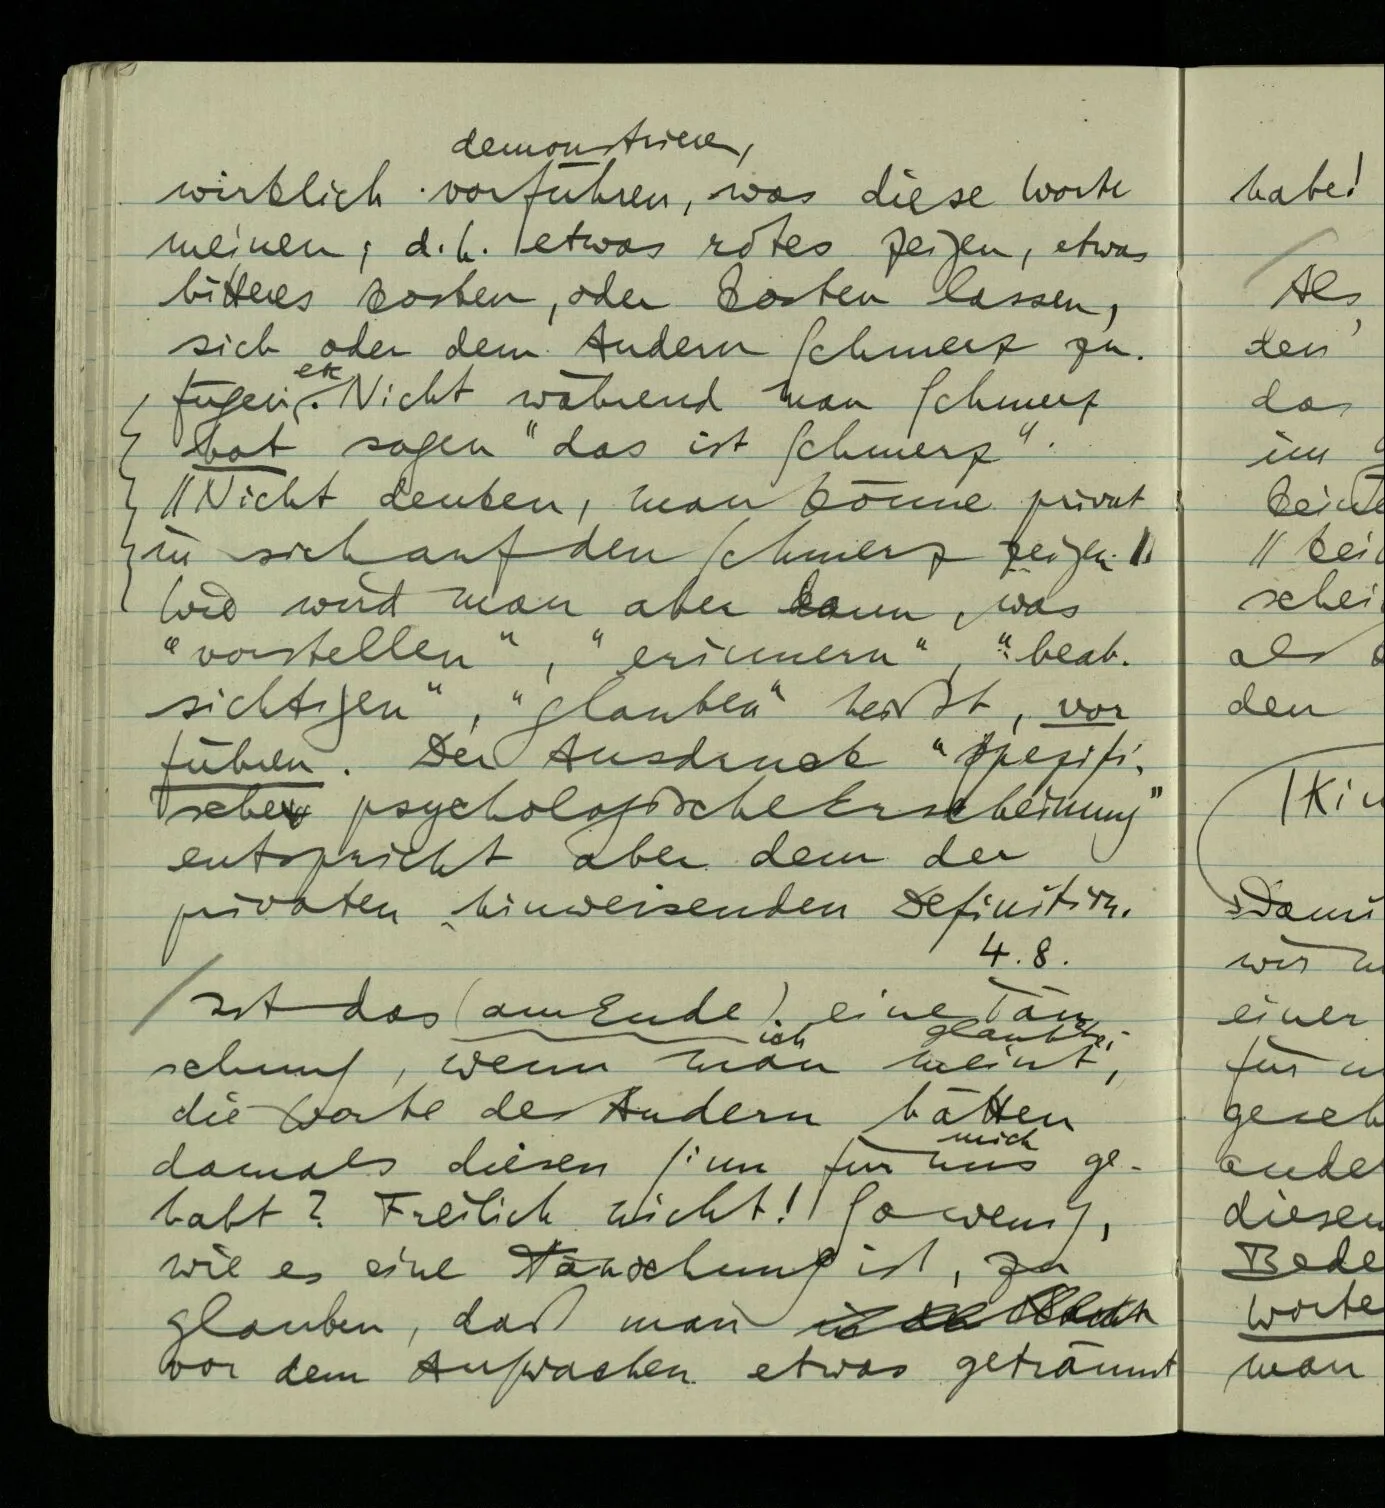 demonstrieren,
wirklich vorführen, was diese Worte
meinen; d.h. etwas rotes zeigen, etwas
bitteres kosten, oder kosten lassen,
sich oder dem Andern Schmerz zu-
etc
fügen. Nicht während man Schmerz
hat sagen "das ist Schmerz".
//Nicht denken, man könne privat
in sich auf den Schmerz zeigen.//
Wie wird man aber kann, was
"vorstellen", "erinnern", "beab-
sichtigen", "glauben" heißt, vor
führen. Der Ausdruck "spezifi-
sche psychologische Erscheinung"
entspricht aber dem der
privaten hinweisenden Definition.
4.8.
/ Ist das (am Ende) eine Täu
ich glaubte,
schung, wenn man meint,
die Worte des Andern hätten
mich
damals diesen Sinn für uns ge-
habt? Freilich nicht! So wenig,
wie es eine Täuschung ist, zu
glauben, daß man
vor dem Aufwachen etwas geträumt
habe!
/ Als
den
das
im
den
einer
für
ander
diesen
Bede
Worte
man